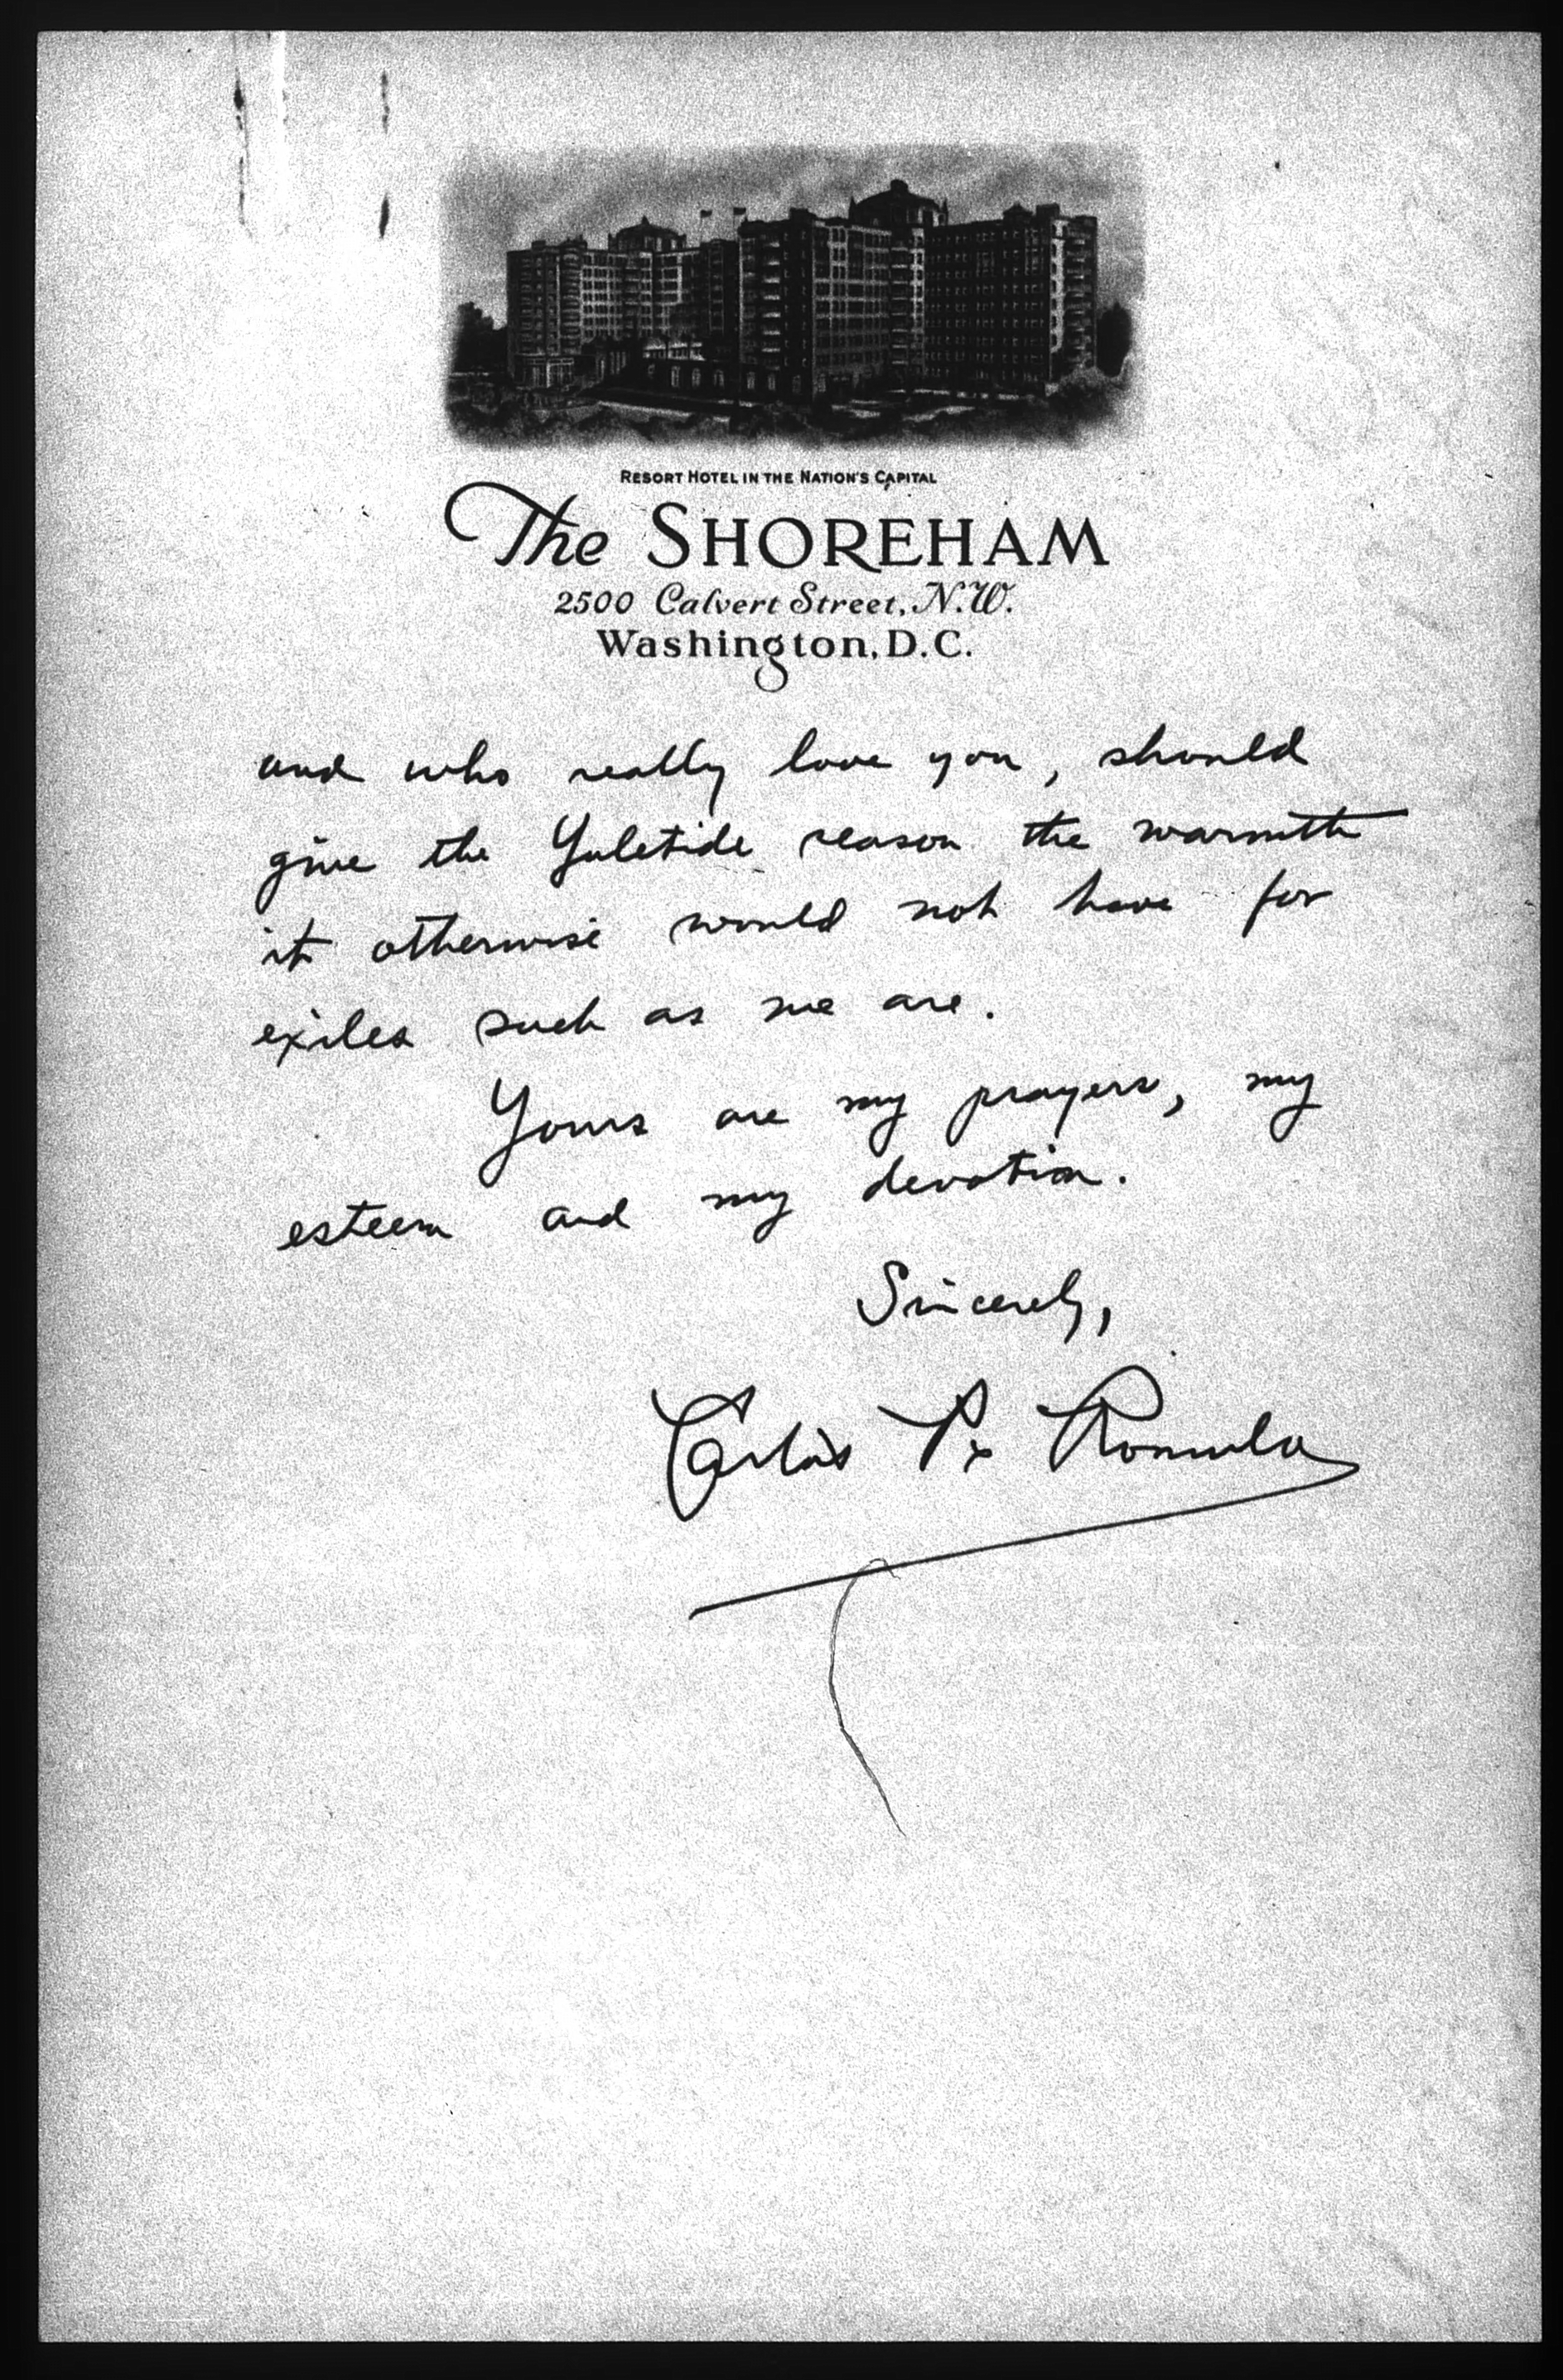 RESORT HOTEL IN THE NATION'S CAPITAL
The SHOREHAM
2500 Calvert Street, N.W.
Washington, D.C.
and who really love you, should
give the Yuletide reason the warmth
it otherwise would not have for
exiles such as we are.
Yours are my prayers, my
esteem and my devotion.
Sincerely,
Carlos P. Romulo